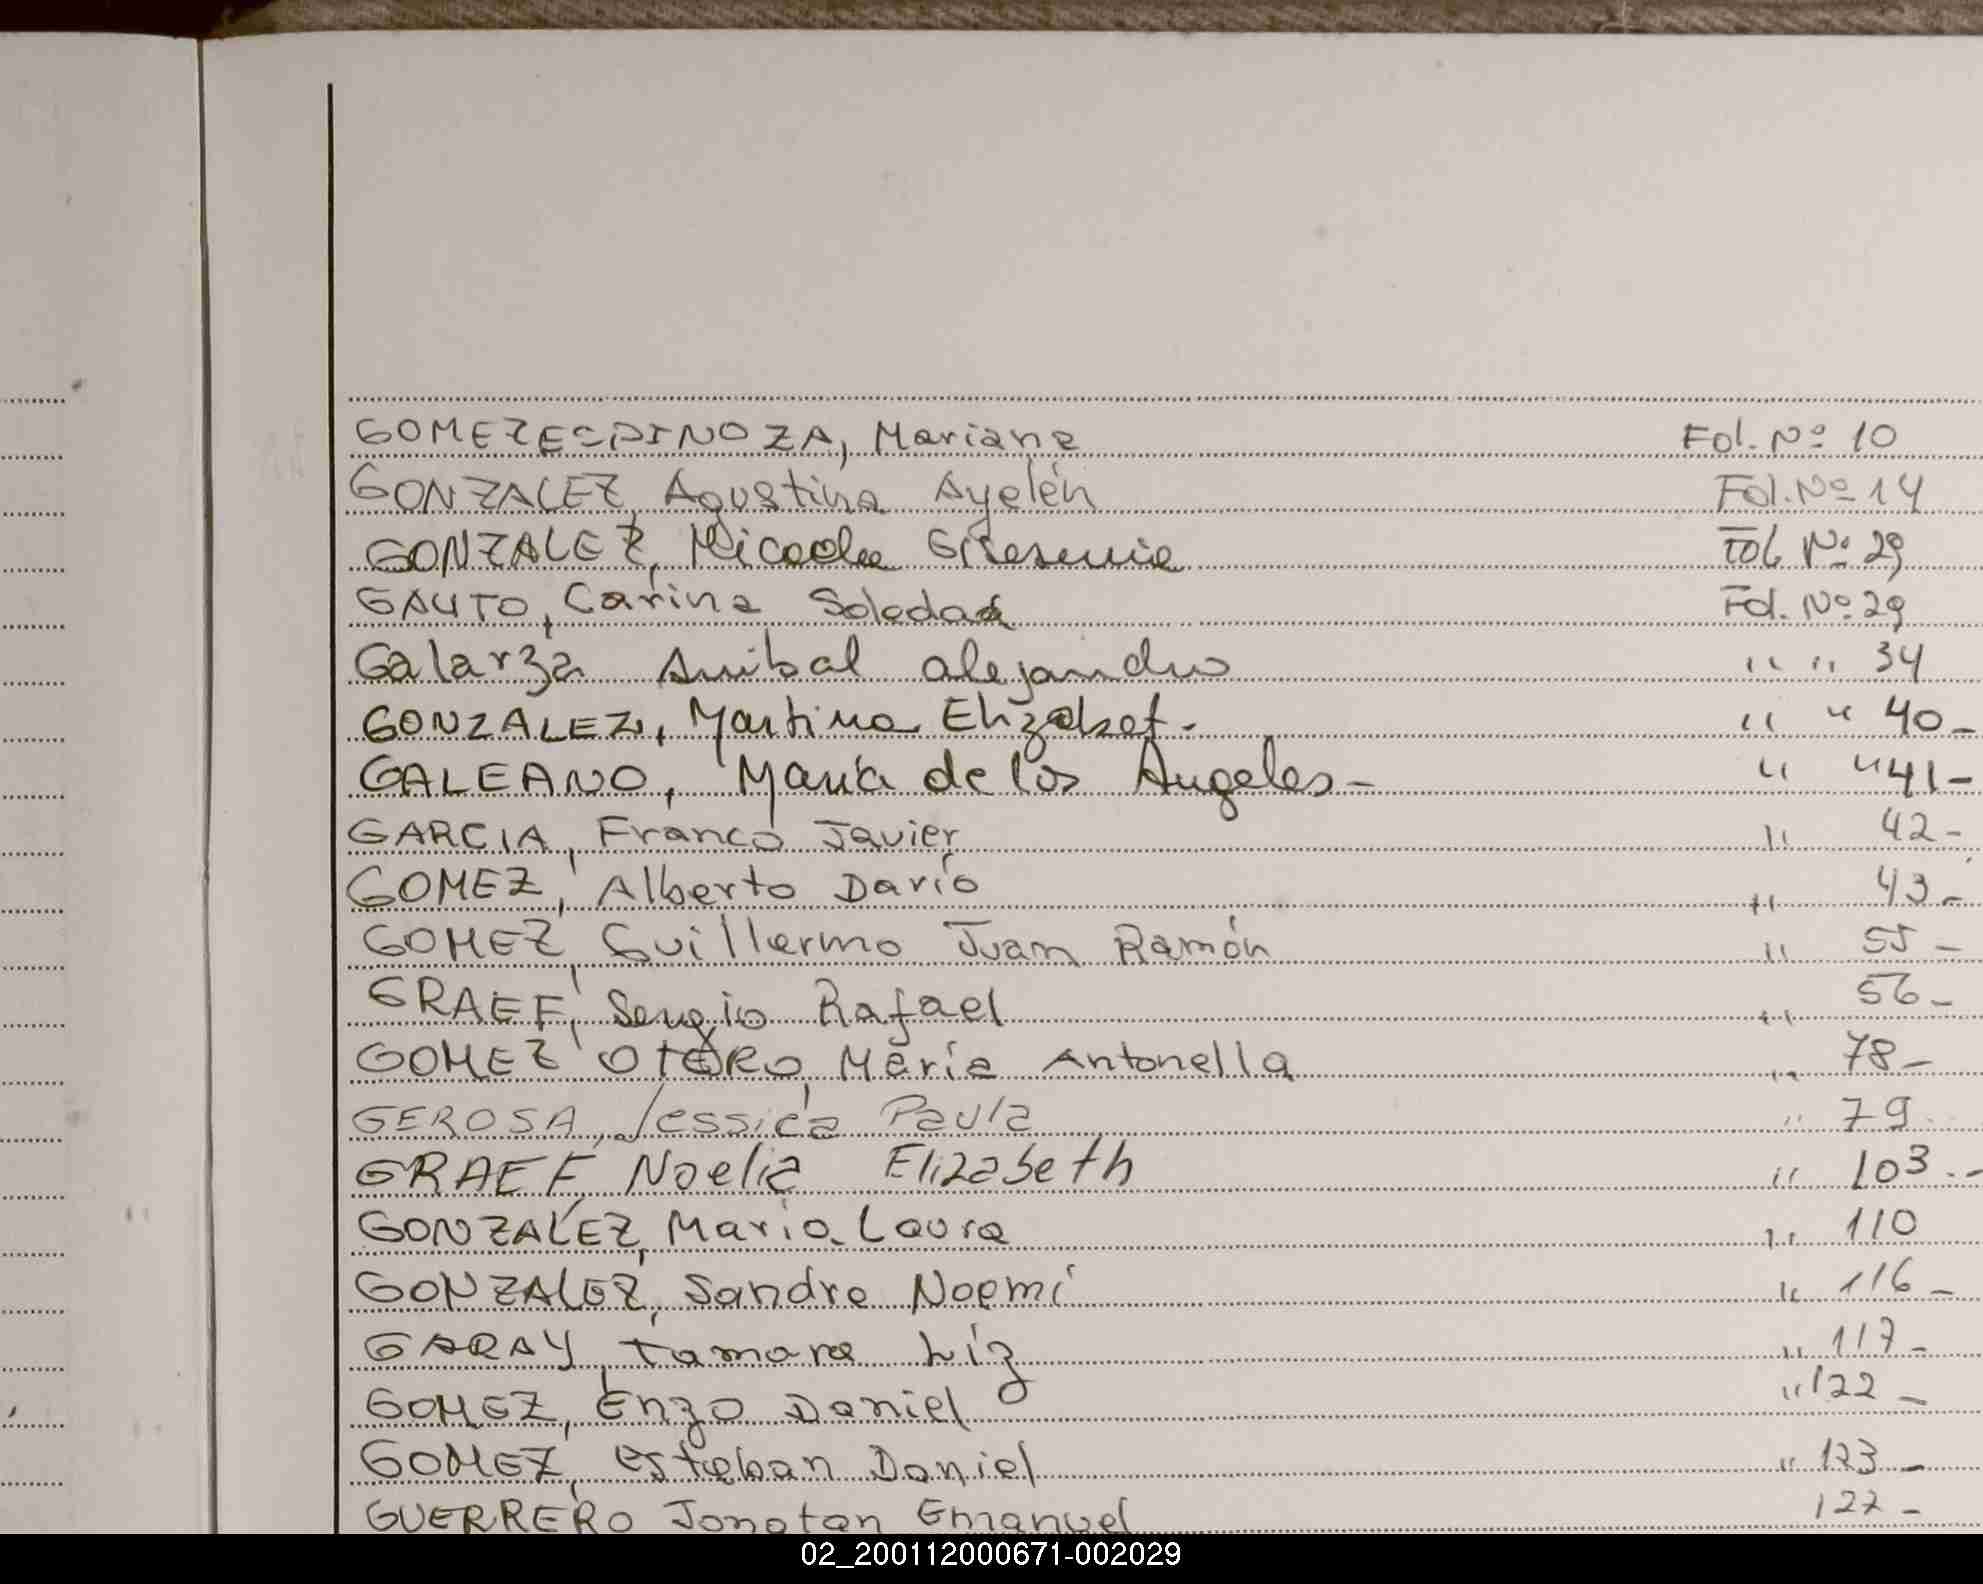 GOMEZ ESPINOZA, Mariana Fol. Nº 10
GONZALEZ, Agustina Ayelén Fol. Nº 14
GONZALEZ, Micaela Fol Nº 29
GAUTO, Carina Soledad Fol. Nº 29
Galarza Anibal alejandro " " 34
GONZALEZ, Martina Elizabet. " " 40-
GALEANO, María de los Angeles- " " 41-
GARCIA, Franco Javier " 42-
GOMEZ, Alberto Darío " 43-
GOMEZ, Guillermo Juan Ramón " 55-
GRAEF, Sergio Rafael " 56-
GOMEZ OTERO, María Antonella " 78-
GEROSA, Jessica Paula " 79
GRAEF, Noelia Elizabeth " 103.-
GONZALEZ, María Laura " 110
GONZALEZ, Sandra Noemí " 116-
GARAY, Tamara Liz " 117-
GOMEZ, Enzo Daniel " 122-
GOMEZ, Esteban Daniel " 123-
GUERRERO Jonatan Emanuel 127-
02_200112000671-002029